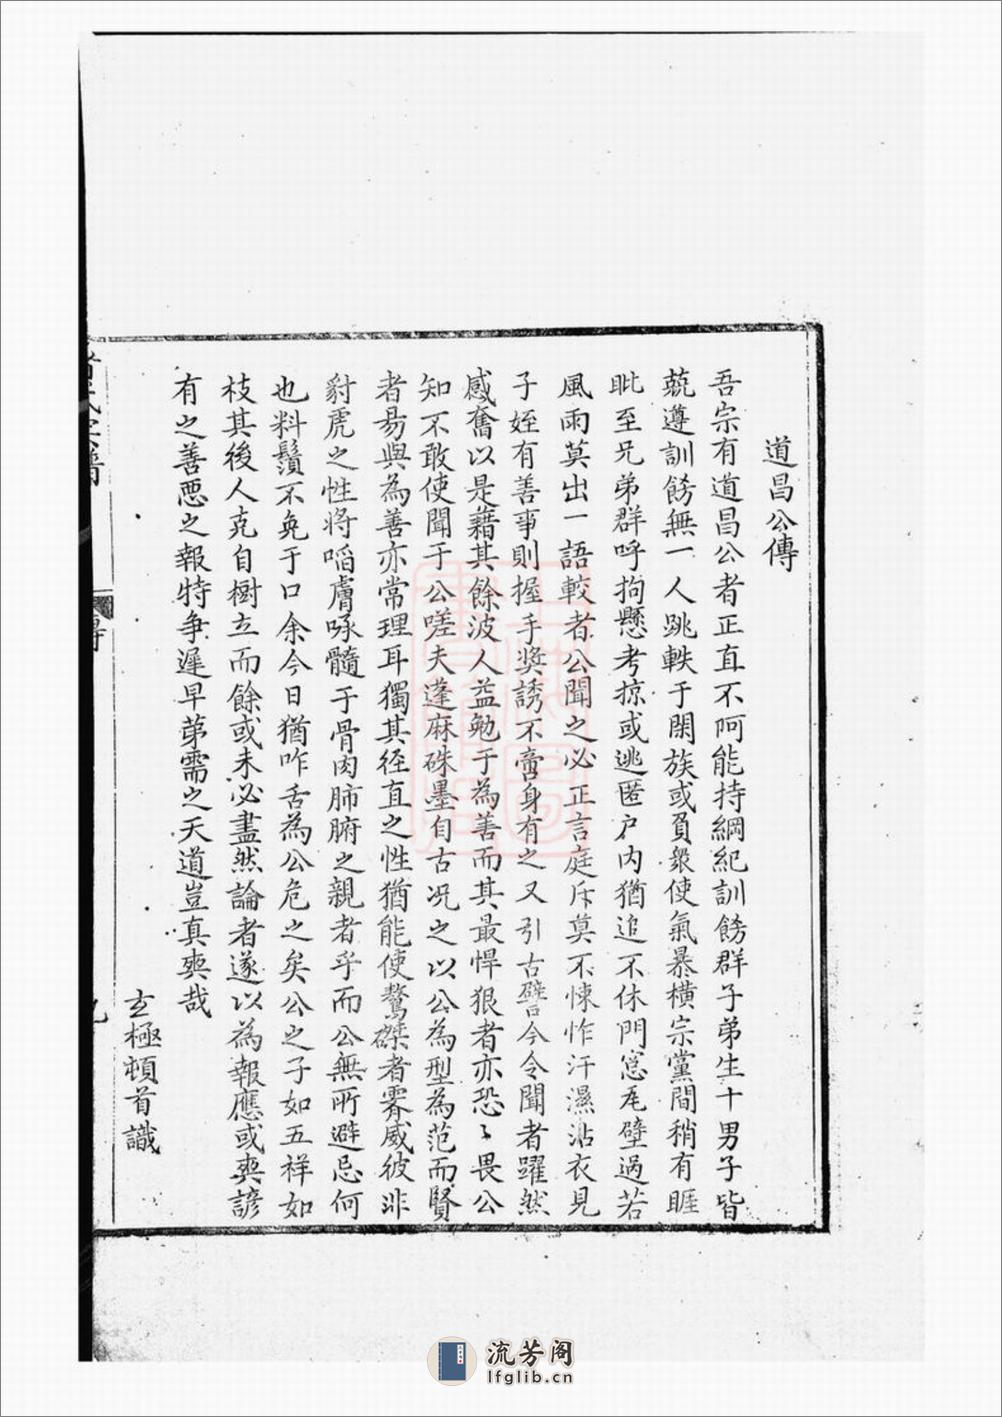 道昌公傳
吾宗有道昌公者正直不呵能持綱紀訓飭群子弟生十男子皆
兢遵訓飭無一人跳軼于閑族或負衆使氣暴橫宗黨間稍有睚
眦至兄弟群呼拘懸考掠或逃匿户内猶追不休門窓瓦壁過若
風雨莫出一語較者公聞之必正言庭斥莫不悚怍汗濕沾衣見
子姪有善事則握手奖誘不啻身有之又引古譬今令聞者躍然
感奮以是藉其餘波人益勉于為善而其最悍狠者亦恐〻畏公
知不敢使聞于公嗟夫蓬麻硃墨自古况之以公為型為范而賢
者易與為善亦常理耳獨其径直之性猶能使驁桀者霽威彼非
豺虎之性將啗膚啄髓于骨肉肺腑之親者乎而公無所避忌何
也料鬚不免于口余今日猶咋舌為公危之矣公之子如五祥如
枝其後人克自樹立而餘或未必盡然論者遂以為報應或爽諺
有之善惡之報特争遲早苐需之天道豈真爽哉
玄極頓首識
氏宗譜
傳
九
流芳阁
lfglib.cn